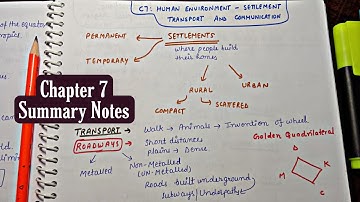 C7: HUMAN ENVIRONMENT - SETTLEMENT
TRANSPORT AND COMMUNICATION
of the equator
tropics.
PERMANENT
SETTLEMENTS
where people build
their homes
TEMPORARY
RURAL
URBAN
COMPACT
SCATERED
Chapter 7
Summary Notes
TRANSPORT → Walk → Animals → Invention of wheel
ROADWAYS → Short distances
plains → Dense
Golden Quadrilateral
Metalled
Non-Metalled
(UN-Metalled)
Roads built underground
Subways/Underpaths
D
K
M
C